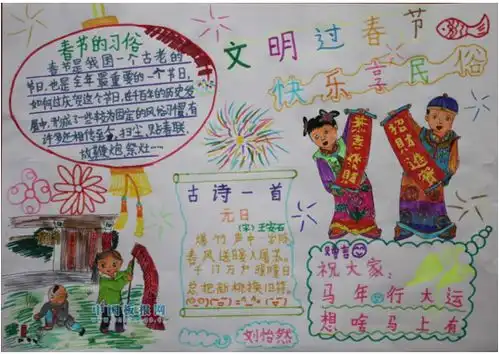 文明过春节
快乐享民俗
春节的习俗
春节是我国一个古老的
节日,也是全年最重要的一个节日,
如何过庆贺这个节日,在千百年的历史发
展中,形成了一些较为固定的风俗习惯,有
许多还相传至今,扫尘,贴春联,
放鞭炮,祭灶……
恭喜发财
招财进宝
古诗一首
元日
(宋)王安石
爆竹声中一岁除
春风送暖入屠苏。
千门万户曈曈日
总把新桃换旧符。
刘怡然
祝大家:
马年行大运
想啥马上有